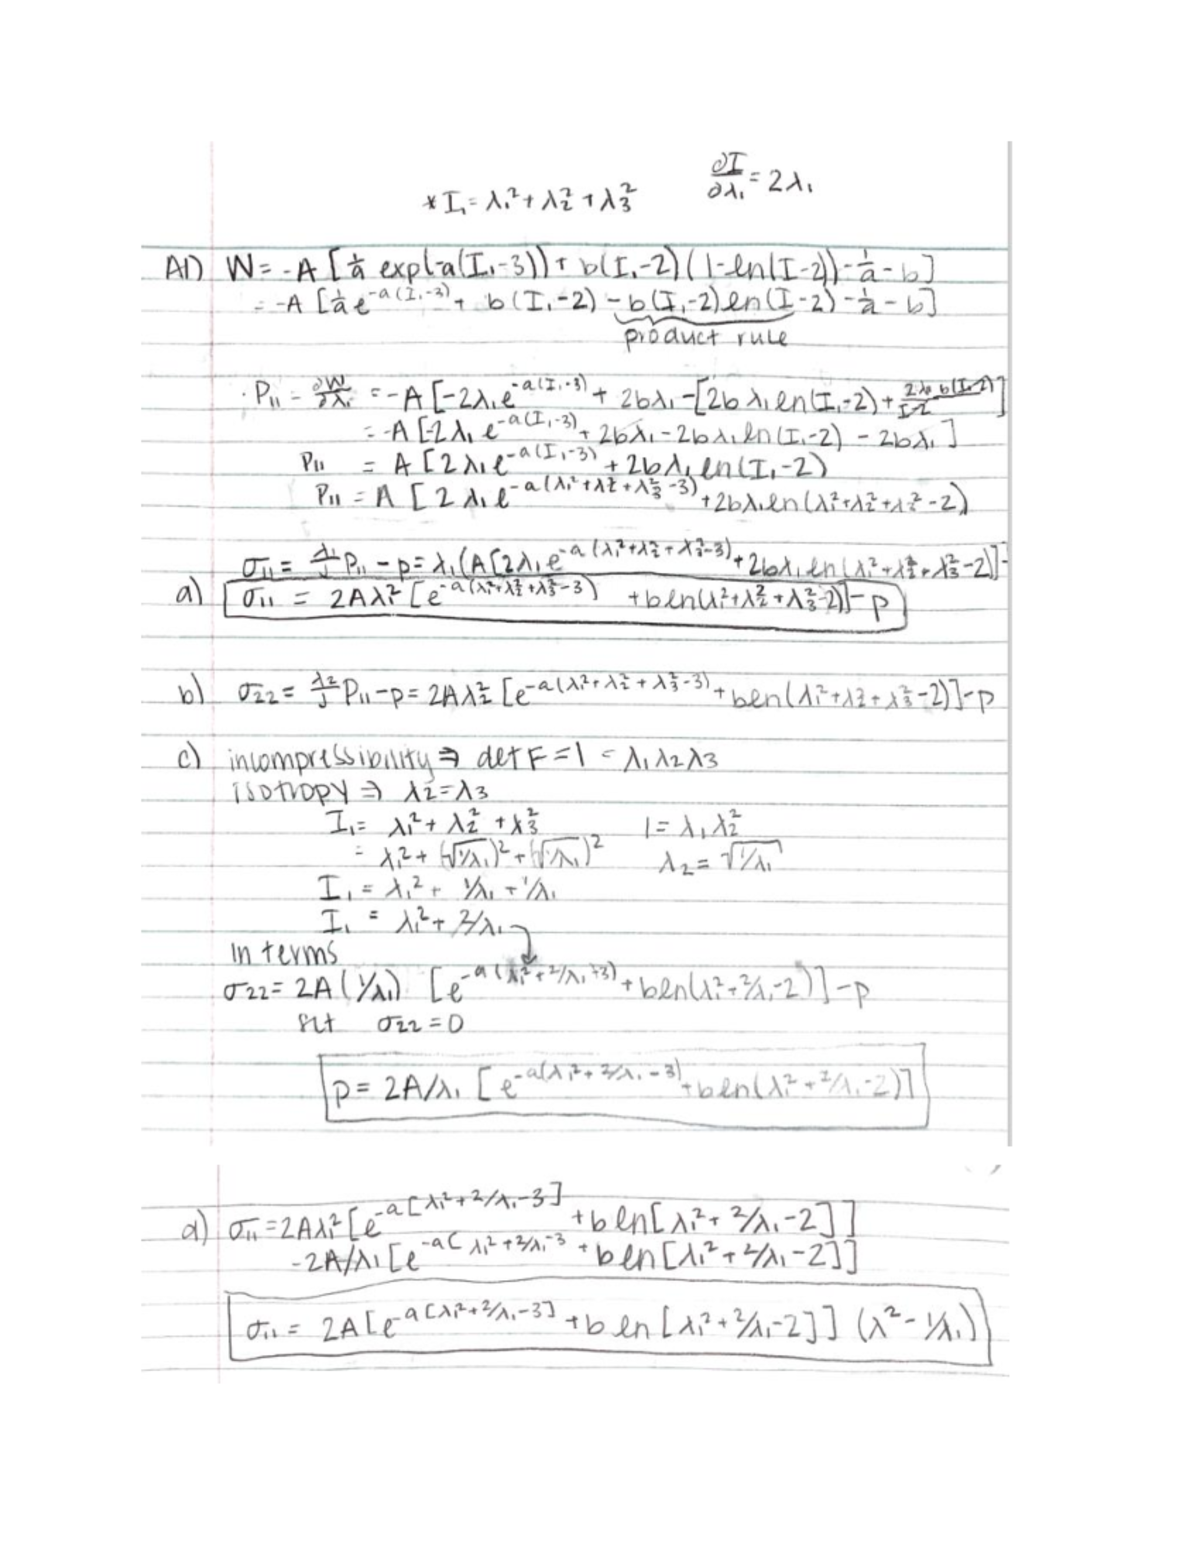 * I₁ = λ₁² + λ₂² + λ₃²   ∂I/∂λ₁ = 2λ₁
A1) W = -A [1/a exp(-a(I₁-3)) + b(I₁-2)(1-ln(I-2)) - 1/a - b]
= -A [1/a e^{-a(I₁-3)} + b(I₁-2) - b(I₁-2)ln(I-2) - 1/a - b]
product rule
· P₁₁ = ∂W/∂λ₁ = -A [-2λ₁e^{-a(I₁-3)} + 2bλ₁ - [2bλ₁ln(I₁-2) + 2λ₁b(I₁-2)/I-2]
= -A [-2λ₁e^{-a(I₁-3)} + 2bλ₁ - 2bλ₁ln(I₁-2) - 2bλ₁]
P₁₁ = A [2λ₁e^{-a(I₁-3)} + 2bλ₁ln(I₁-2)
P₁₁ = A [2λ₁e^{-a(λ₁²+λ₂²+λ₃²-3)} + 2bλ₁ln(λ₁²+λ₂²+λ₃²-2)
σ₁₁ = λ₁/J P₁₁ - p = λ₁(A[2λ₁e^{-a(λ₁²+λ₂²+λ₃²-3)} + 2bλ₁ln(λ₁²+λ₂²+λ₃²-2)]-
a) σ₁₁ = 2Aλ₁² [e^{-a(λ₁²+λ₂²+λ₃²-3)} + bln(λ₁²+λ₂²+λ₃²-2)] - p
b) σ₂₂ = λ₂/J P₁₁ - p = 2Aλ₂² [e^{-a(λ₁²+λ₂²+λ₃²-3)} + bln(λ₁²+λ₂²+λ₃²-2)] - p
c) incompressibility ⇒ det F = 1 = λ₁λ₂λ₃
isotropy ⇒ λ₂ = λ₃
I₁ = λ₁² + λ₂² + λ₃²   1 = λ₁λ₂²
= λ₁² + (√1/λ₁)² + (√1/λ₁)²   λ₂ = √1/λ₁
I₁ = λ₁² + 1/λ₁ + 1/λ₁
I₁ = λ₁² + 2/λ₁
In terms
σ₂₂ = 2A(1/λ₁) [e^{-a(λ₁²+2/λ₁+3)} + bln(λ₁²+2/λ₁-2)] - p
set σ₂₂ = 0
p = 2A/λ₁ [e^{-a(λ₁²+2/λ₁-3)} + bln(λ₁²+2/λ₁-2)]
d) σ₁₁ = 2Aλ₁² [e^{-a[λ₁²+2/λ₁-3]} + b ln[λ₁²+2/λ₁-2]]
-2A/λ₁ [e^{-a(λ₁²+2/λ₁-3} + b ln[λ₁²+2/λ₁-2]]
σ₁₁ = 2A[e^{-a[λ₁²+2/λ₁-3]} + b ln[λ₁²+2/λ₁-2]] (λ²-1/λ₁)